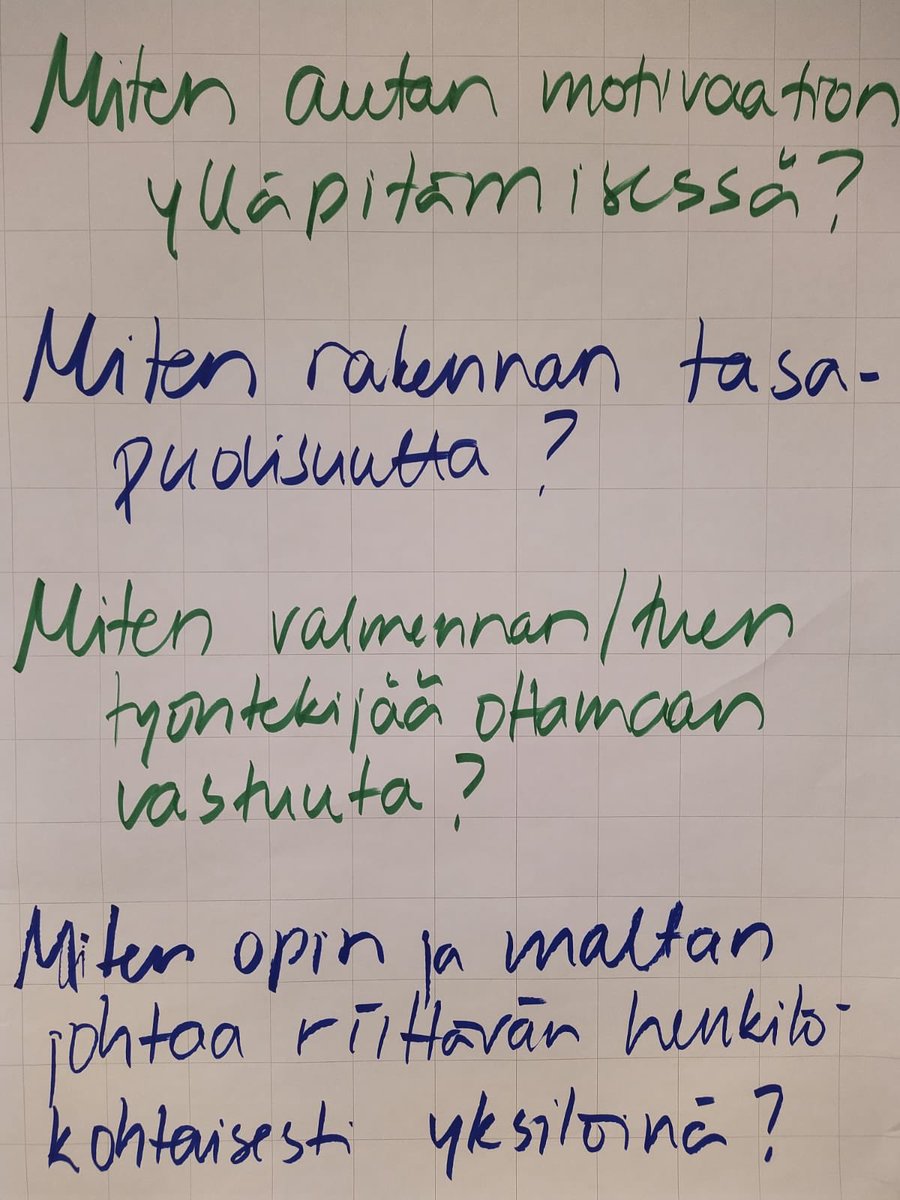 Miten autan motivaation
ylläpitämisessä?
Miten rakennan tasa-
puolisuutta?
Miten valmennan/tuen
työntekijää ottamaan
vastuuta?
Miten opin ja maltan
johtaa riittävän henkilö-
kohtaisesti yksilöinä?